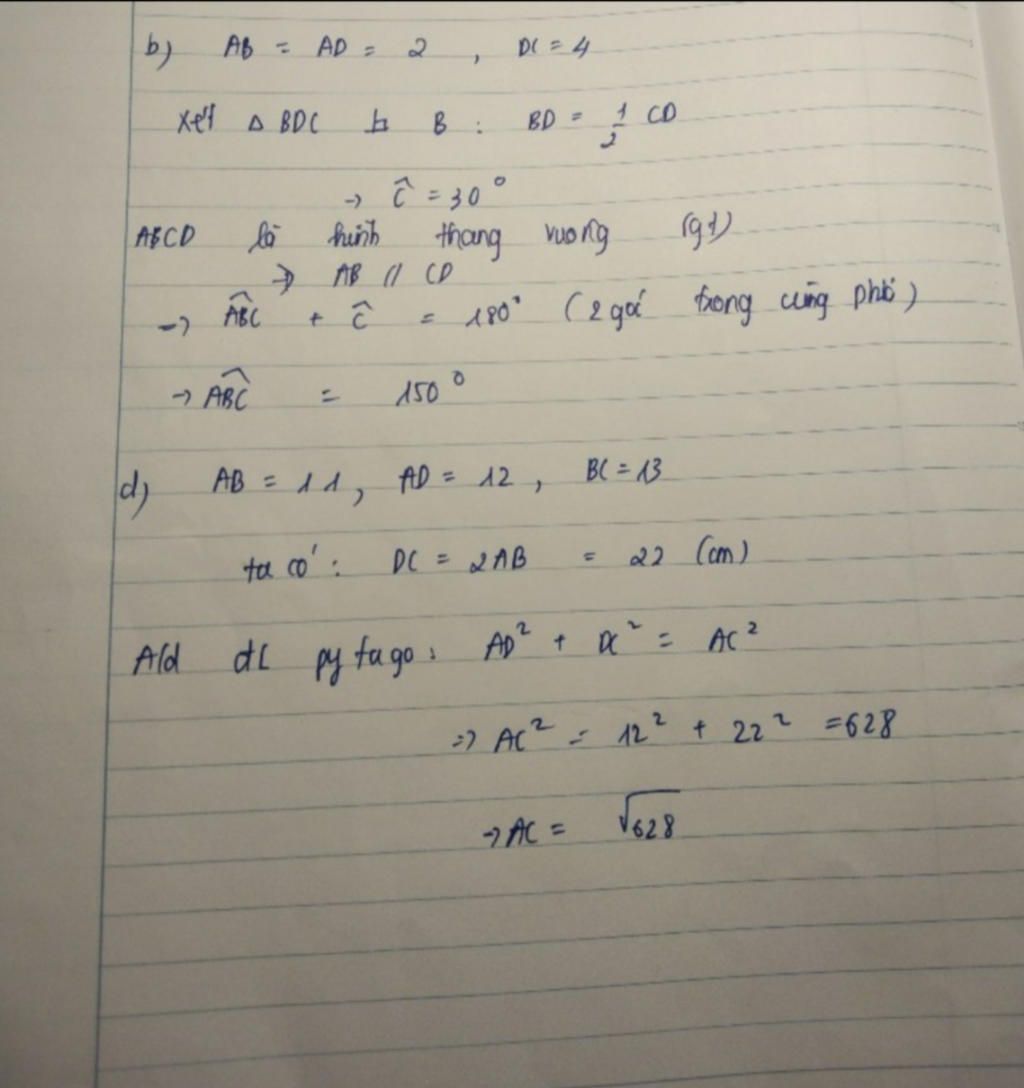 b) AB = AD = 2 , DC = 4
Xét △ BDC ⊥ B : BD = 1/2 CD
→ Ĉ = 30°
ABCD là hình thang vuông (gt)
⇒ AB // CD
→ ABC^ + Ĉ = 180° (2 góc trong cùng phía)
→ ABC^ = 150°
d) AB = 11, AD = 12, BC = 13
ta có: DC = 2AB = 22 (cm)
A/d ĐL pytago: AD² + DC² = AC²
⇒ AC² = 12² + 22² = 628
→ AC = √628